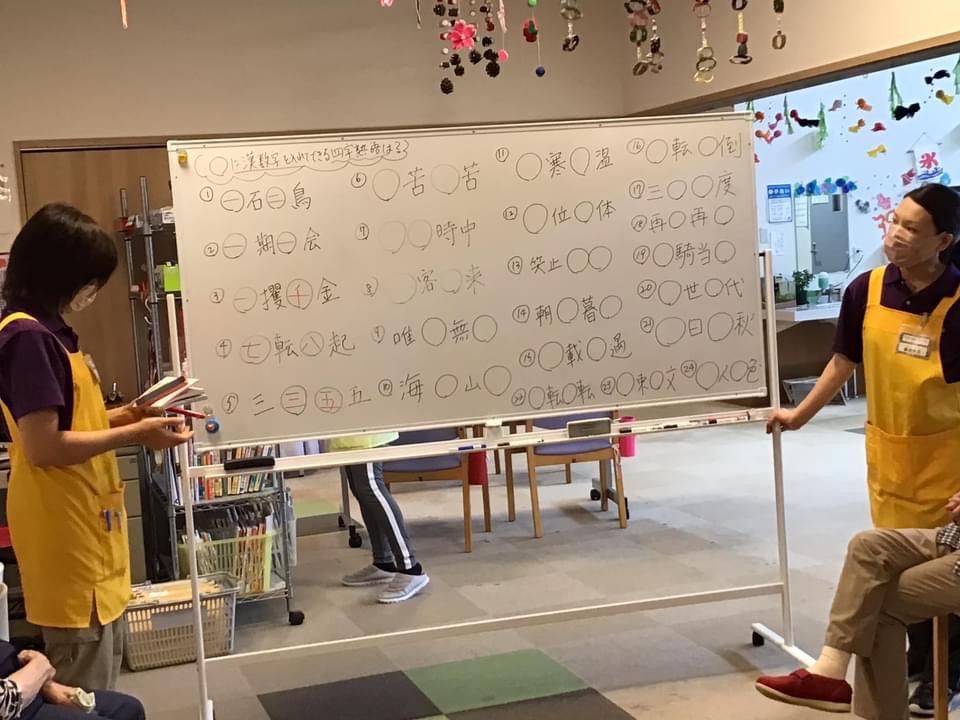 ○に漢数字を入れてできる四字熟語は?
① ㊀石㊁鳥
② ㊀期㊀会
③ ㊀攫㊉金
④ ㊆転㊇起
⑤ 三㊂㊄五
⑥ ○苦○苦
⑦ ○○時中
⑧ ○客○来
⑨ 唯○無○
⑩ 海○山○
⑪ ○寒○温
⑫ ○位○体
⑬ 笑止○○
⑭ 朝○暮○
⑮ ○載○遇
⑯ ○転○倒
⑰ 三○○度
⑱ 再○再○
⑲ ○騎当○
⑳ ○世○代
㉑ ○日○秋
㉒ ○転○転
㉓ ○束○文
㉔ ○人○色
氷